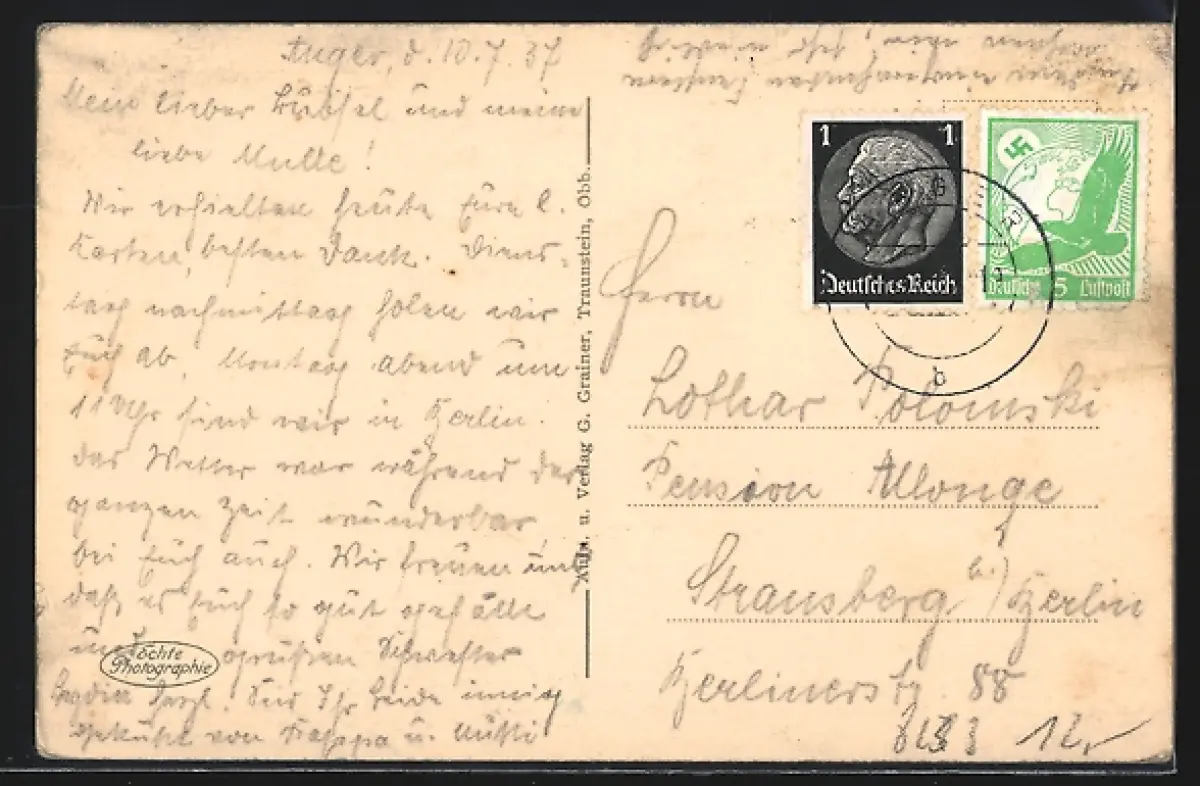 Anger, d. 10.7.37
Mein lieber und meine
liebe Mutte!
Wir erhielten heute Eure l.
Karten, besten Dank. Diens-
tag nachmittag holen wir
Euch ab, Montag abend um
11 Uhr sind wir in Berlin.
Das Wetter war während der
ganzen Zeit wunderbar
bei Euch auch. Wir freuen uns,
daß es Euch so gut gefällt
und grüßen Schwester
Lydia herzl. Seid Ihr beide innig
geküßt von Pappa u. Mutti
echte
Photographie
Aufn. u. Verlag G. Grainer, Traunstein, Obb.
1 1
Deutsches Reich
Deutsche 5 Luftpost
b
Herrn
Lothar Polomski
Pension Allonge
Strausberg b./Berlin
Berlinerstr. 88
12,